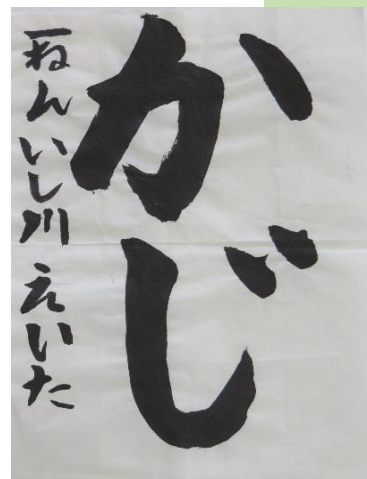 かじ
一ねん いし川 えいた